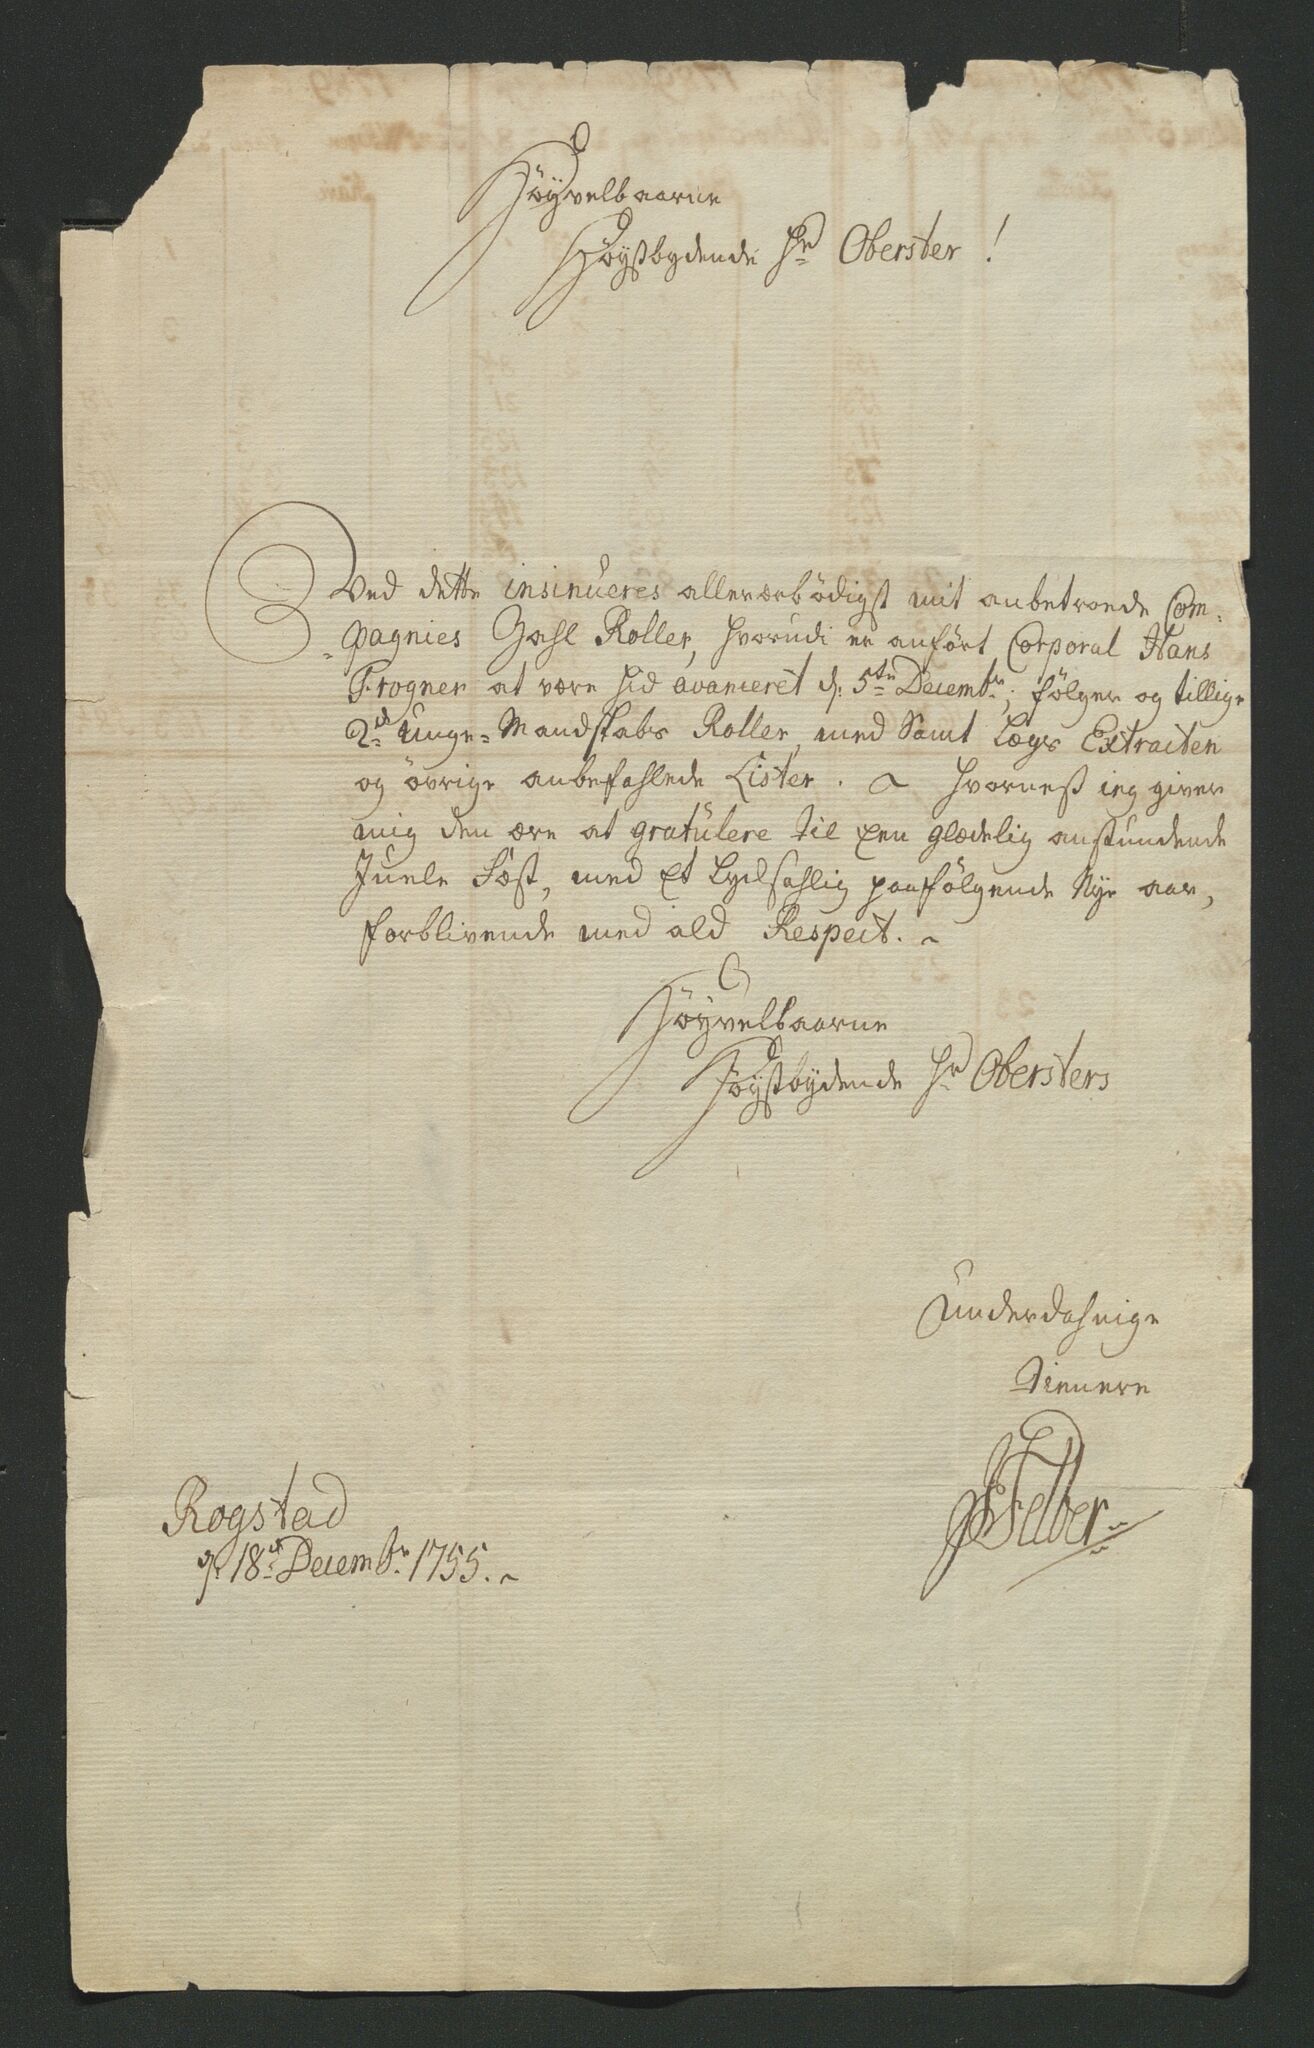 Höyvelbaarne
Höystbydende Hr Oberster!
Ved dette insinueres allerærbödigst mit anbetroede Com-
pagnies Zahl Roller, hvorudi er anfört Corporal Hans
Frogner at være hid avanceret d: 5te Decembr; fölger og tillige
2de Unge-Mandskabs Roller, med Samt Lægs Extracten
og övrige anbefahlede Lister. hvornest ieg giver
mig den ære at gratulere til een glædelig anstundende
Juele Fæst, med et Lycksahlig paafölgende Nye aar,
forblivende med ald Respect.
Höyvelbaarne
Höystbydende Hr Obersters
Underdahnige
tienere
Felber
Rogstad
d: 18de Decembr. 1755.